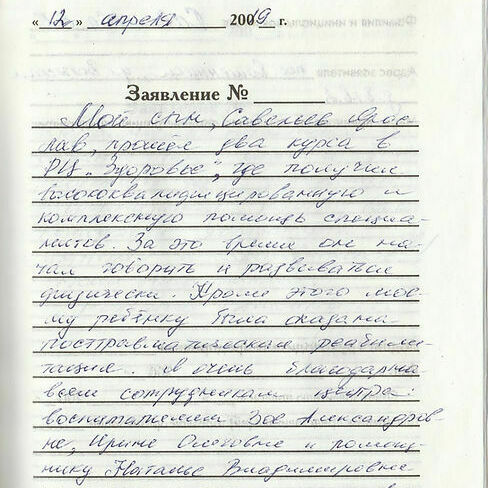 « 12 » апреля 20019 г.
Заявление №
Мой сын, Савельев Ярос-
лав, прошёл два курса в
РЦ „Здоровье", где получил
высококвалифицированную и
комплексную помощь специа-
листов. За это время он на-
чал говорить и развиваться
физически. Кроме этого мое-
му ребёнку была оказана
посттравматическая реабили-
тация. Я очень благодарна
всем сотрудникам центра:
воспитателем Зое Александров-
не, Ирине Олеговне и помощ-
нику Наталье Владимировне